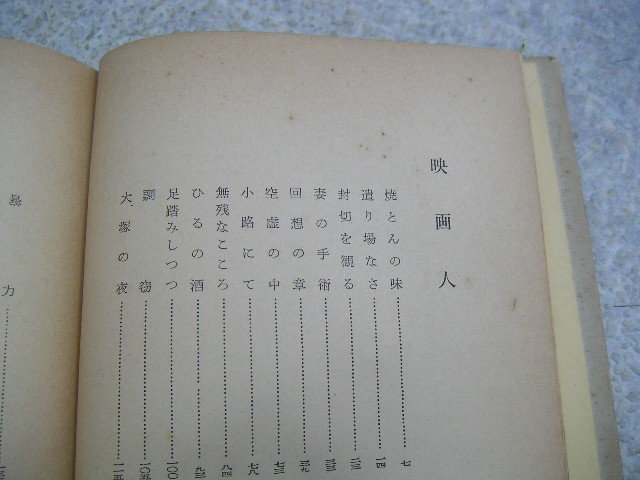 映画人
焼とんの味……七
遣り場なさ……一四
封切を観る……
妻の手術……
回想の章……
空虚の中……
小路にて……七八
無残なこころ……八四
ひるの酒……九三
足踏みしつつ……一〇〇
剽窃……一〇五
大塚の夜……一一五
暴力……